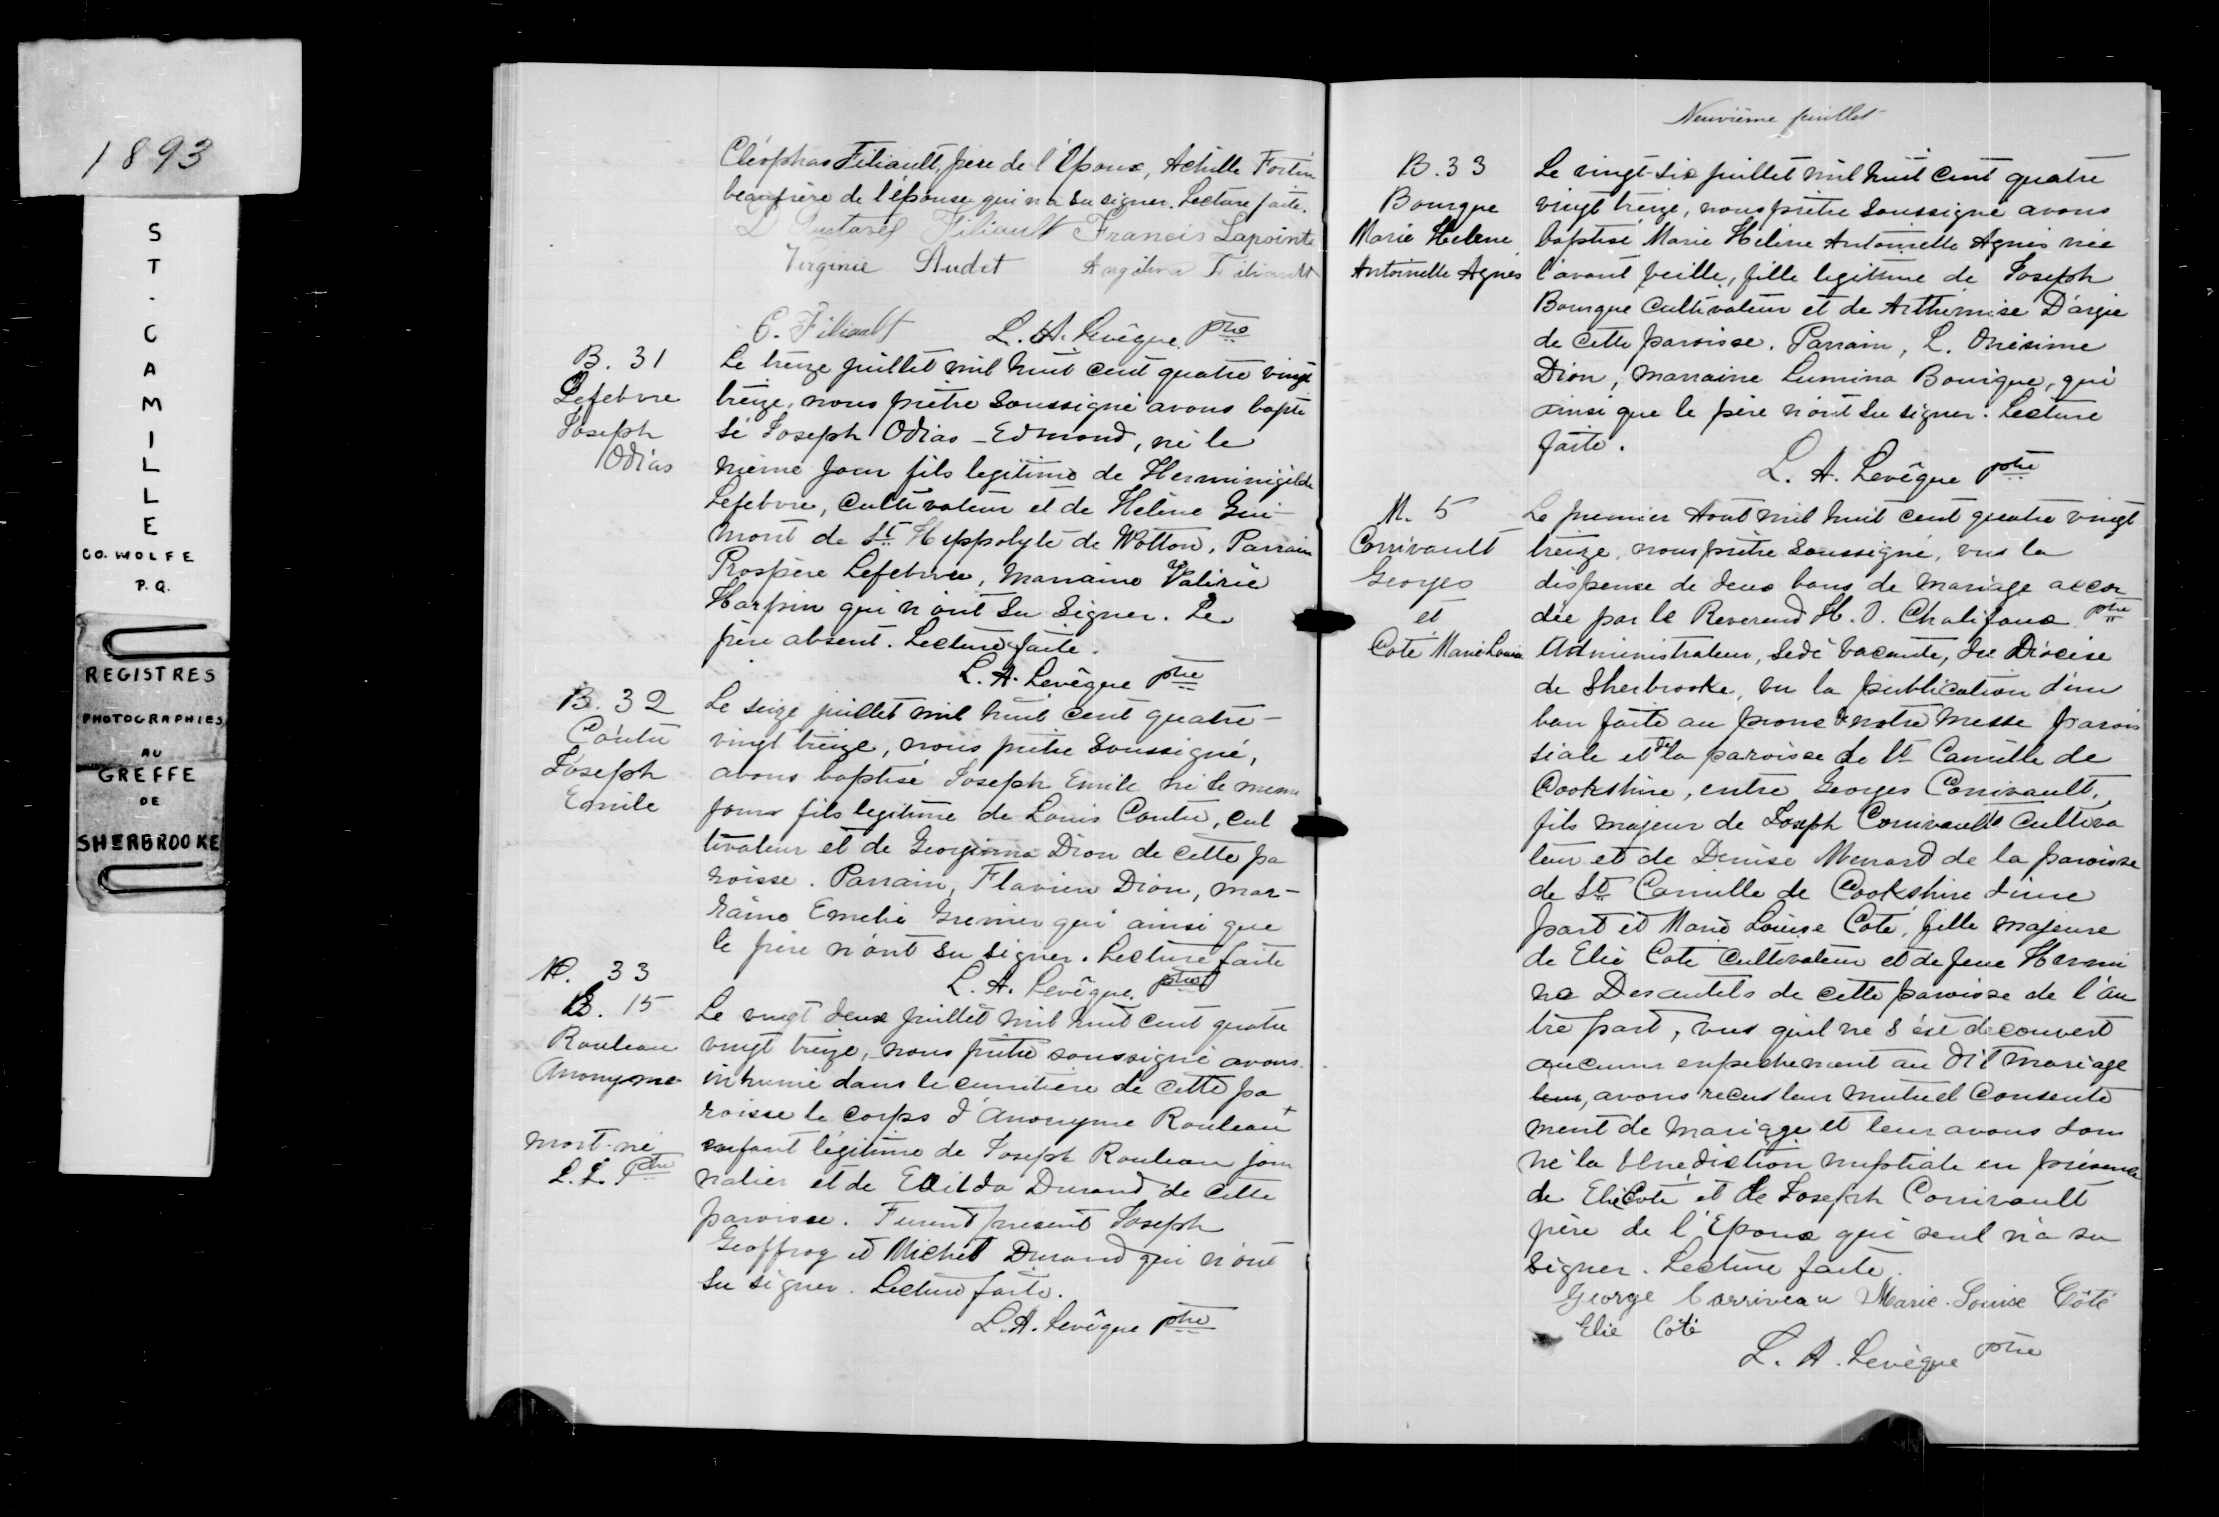 1893
ST. CAMILLE
CO. WOLFE
P.Q.
REGISTRES
PHOTOGRAPHIES
AU
GREFFE
DE
SHERBROOKE
Cléophas Filiault, père de l'Epoux, Achille Fortin
beaufrère de l'épouse qui n'a su signer. Lecture faite.
Gustave Filiault Francis Lapointe
Virginie Audet Angelina Filiault
C. Filiault L. A. Levêque ptre
B. 31
Lefebvre
Joseph
Odias
Le treize juillet mil huit cent quatre vingt
treize, nous prêtre soussigné avons bapti
sé Joseph Odias-Edmond, né le
même jour fils legitime de Herminigilde
Lefebvre, cultivateur et de Hélène Gui-
mont de St Hyppolyte de Wotton. Parrain
Prospère Lefebvre, marraine Valérie
Harpin qui n'ont su signer. Le
père absent. Lecture faite.
L. A. Levêque ptre
B. 32
Coutu
Joseph
Emile
Le seize juillet mil huit cent quatre-
vingt treize, nous prêtre soussigné,
avons baptisé Joseph Emile né le meme
jour fils legitime de Louis Coutu, cul
tivateur et de Georgianna Dion de cette pa
roisse. Parrain, Flavien Dion, mar-
raine Emelie Grenier qui ainsi que
le père n'ont su signer. Lecture faite
L. A. Levêque ptre
33
15
Rouleau
Anonyme
mort-né
L. L. Ptre
Le vingt deux juillet mil huit cent quatre
vingt treize, nous prêtre soussigné avons
inhumé dans le cimitière de cette pa
roisse le corps d'Anonyme Rouleau +
enfant légitime de Joseph Rouleau jour
nalier et de Exilda Durand de cette
paroisse. Furent present Joseph
Geoffroy et Michel Durand qui n'ont
su signer. Lecture faite.
L. A. Levêque ptre
Neuvième feuillet
B. 33
Bourque
Marie Hélène
Antoinette Agnès
Le vingt-six juillet mil huit cent quatre
vingt treize, nous prêtre soussigné avons
baptisé Marie Hélène Antoinette Agnès née
l'avant veille, fille legitime de Joseph
Bourque cultivateur et de Arthemise D'argie
de cette paroisse. Parrain, L. Onésime
Dion, marraine Lumina Bourque, qui
ainsi que le père n'ont su signer. Lecture
faite.
L. A. Levêque ptre
M. 5
Corrivault
Georges
et
Coté Marie Louise
Le premier Aout mil huit cent quatre vingt
treize, nous prêtre soussigné, vus la
dispense de deux bans de mariage accor
dée par le Reverend H. O. Chalifoux ptre
Administrateur, Sede Vacante, du Diocèse
de Sherbrooke, vu la publication d'un
ban faite au prone de notre messe parois
siale et de la paroisse de St Camille de
Cookshire, entre Georges Corrivault,
fils majeur de Joseph Corrivault Cultiva
teur et de Denise Menard de la paroisse
de St Camille de Cookshire d'une
part et Marie Louise Coté, fille majeure
de Elie Coté cultivateur et de feue Hermi
ne Desautels de cette paroisse de l'au
tre part, vus qu'il ne s'est decouvert
aucuns enpechement au dit mariage
leur, avons recus leur mutuel consente
ment de mariage et leur avons don
né la bénediction nuptiale en présence
de Elie Coté et de Joseph Corrivault
père de l'Epoux qui seul n'a su
signer. Lecture faite.
George Carriveau Marie-Louise Côté
Elie Coté
L. A. Levêque ptre